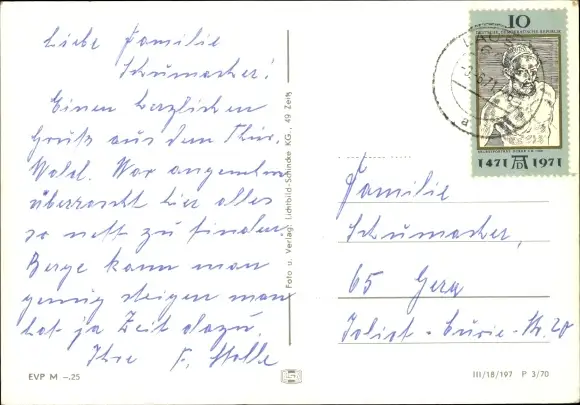 Liebe Familie
Schumacher!
Einen herzlichen
Gruß aus dem Thür.
Wald. War angenehm
überrascht hier alles
so nett zu finden.
Berge kann man
genug steigen man
hat ja Zeit dazu.
Ihre F. Stolle
EVP M –.25
Foto u. Verlag: Lichtbild-Schincke KG., 49 Zeitz
10
DEUTSCHE DEMOKRATISCHE REPUBLIK
1471 1971
Familie
Schumacher,
65 Gera
Joliot-Curie-Str. 20
III/18/197 P 3/70